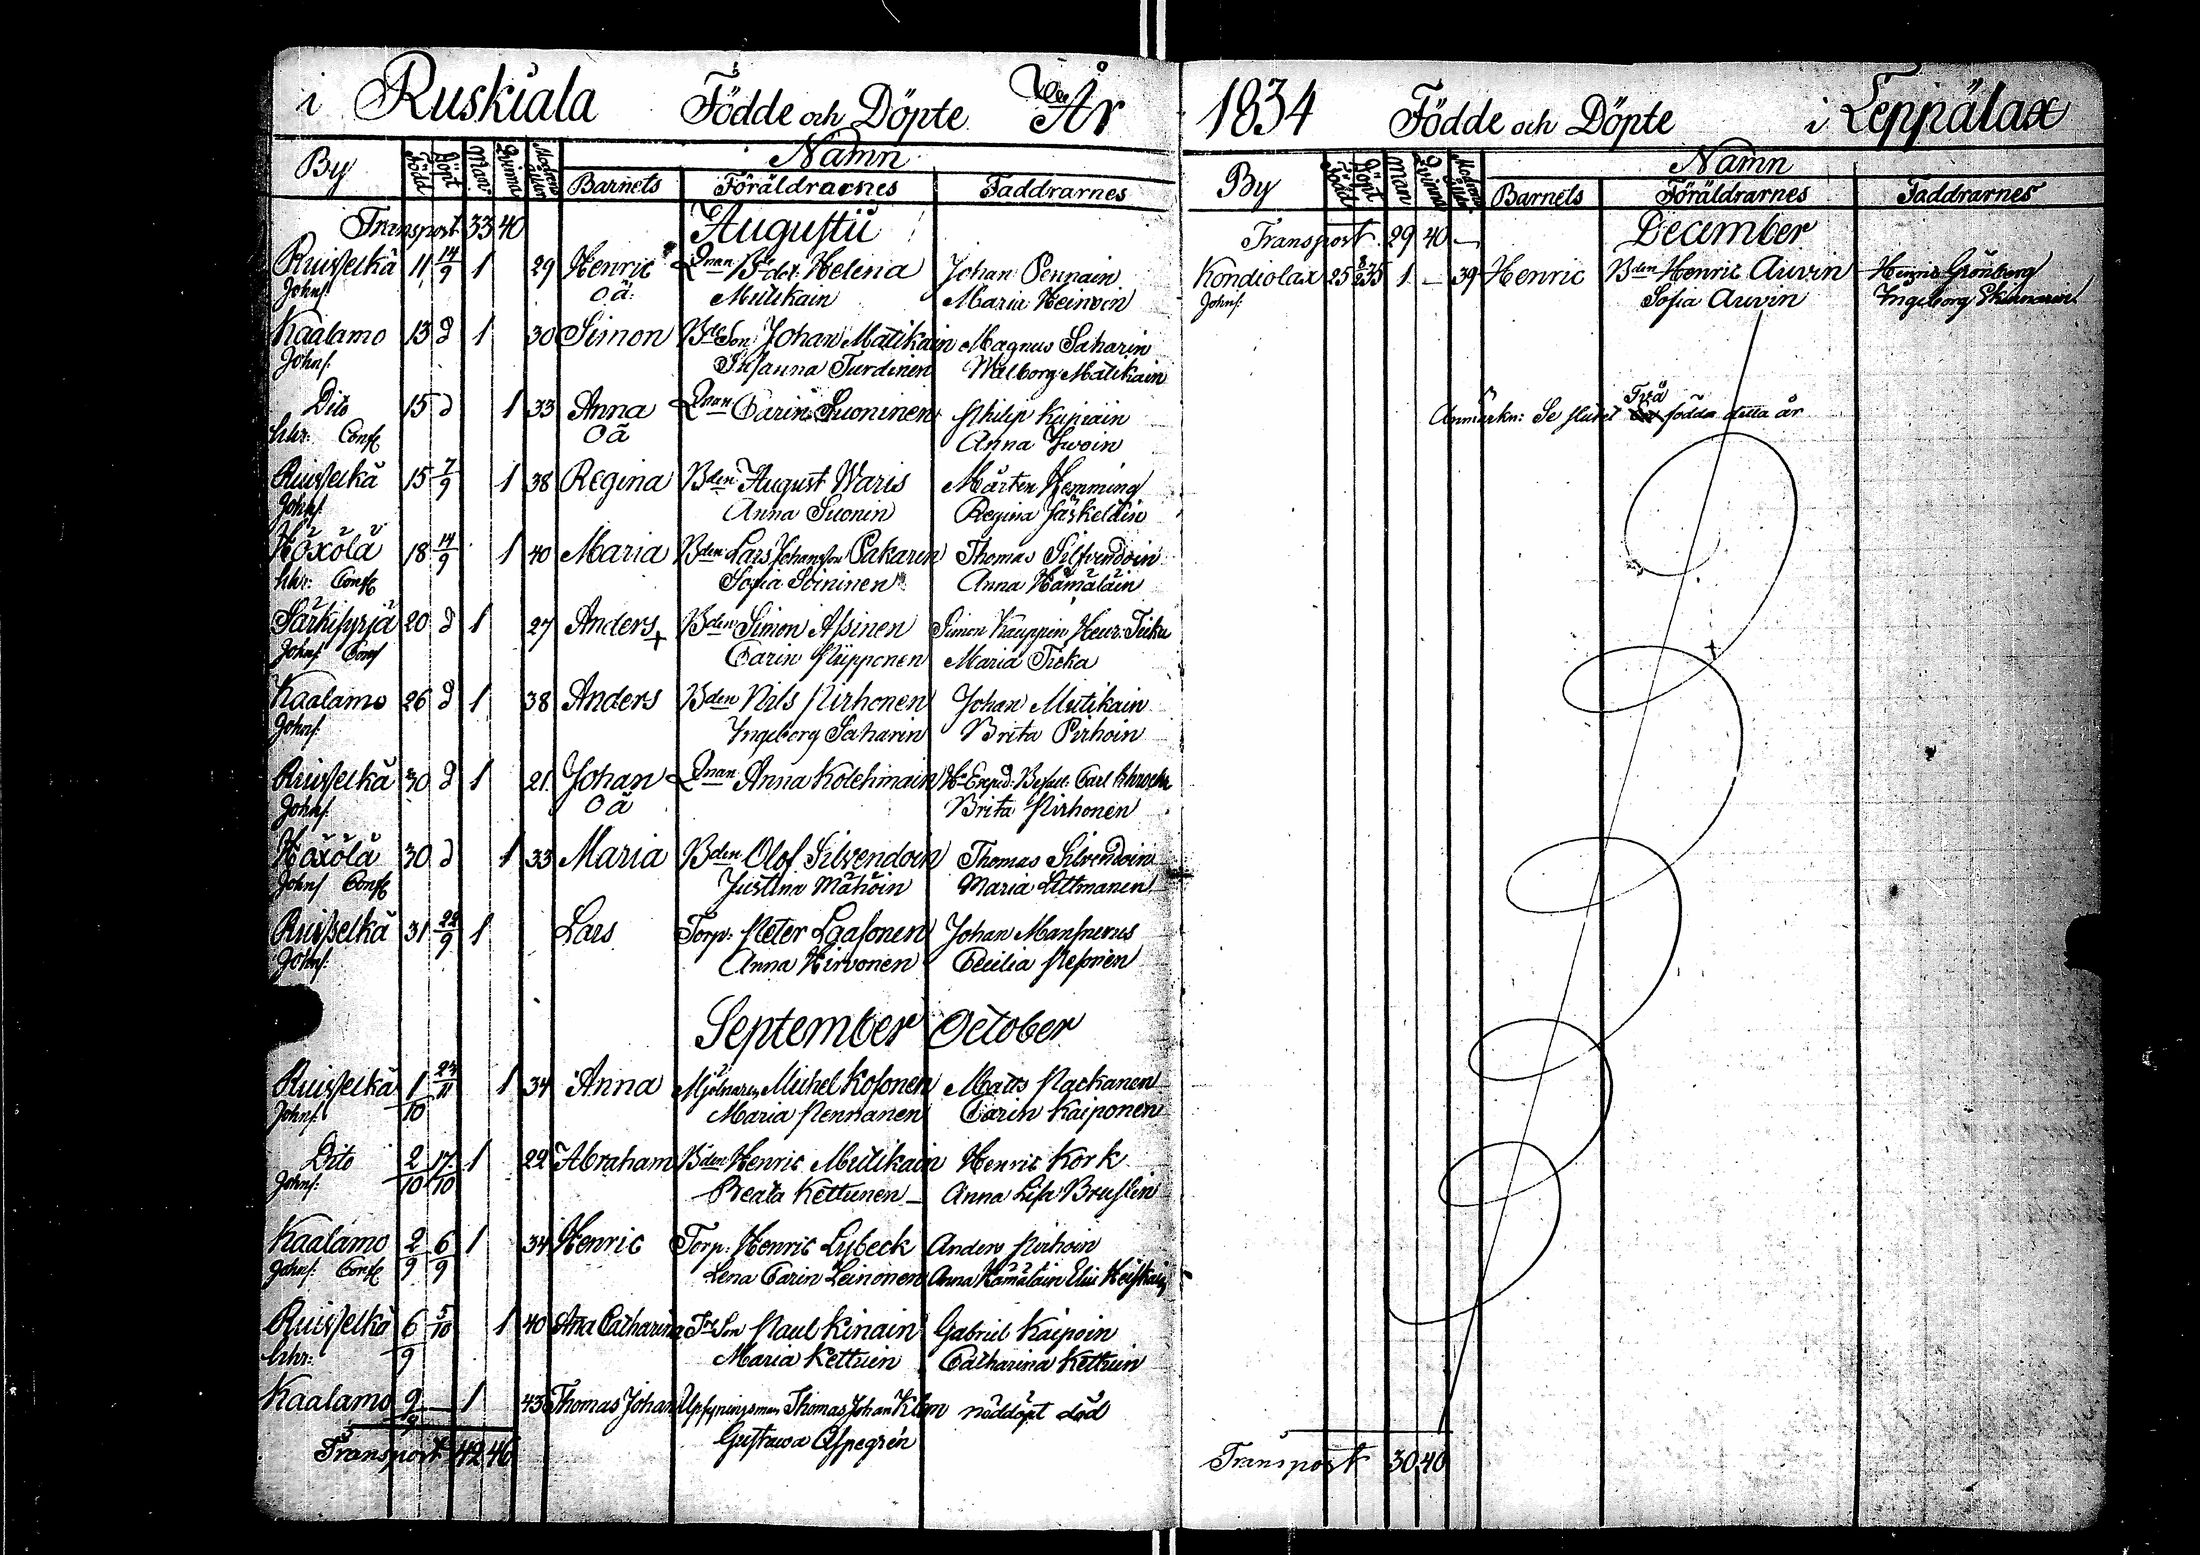 i Ruskiala Födde och Döpte År
By Född Döpt Man Qvinna Modrens ålder Namn
Barnets Föräldrarnes Faddrarnes
Transport 33 40 Augusti
Ruisselkä 11 14/9 1 29 Henric Qnan Bde dot. Helena Johan Pennain
Johns. Oä: Mutikain Maria Heinoin
Kaalamo 13 d 1 30 Simon Bde Son Johan Mutikain Magnus Saharin
Johns. Susanna Turdinen Walborg Mutikain
Dito 15 d 1 33 Anna Qnan Carin Suoninen Philip
khr: Conf Oä Anna Iwoin
Ruisselkä 15 7/9 1 38 Regina Bden August Waris Mårten Hemming
Johns. Anna Suonin Regina Jäskeläin
Höxölä 18 14/9 1 40 Maria Bden Lars Johansson Pakarin Thomas Silfvendoin
khr: Conf Sofia Soininen Anna Hämäläin
Särkisyrjä 20 d 1 27 Anders Bden Simon Asinen Simon Kauppin Henr:
Johns. Conf Carin Piipponen Maria
Kaalamo 26 d 1 38 Anders Bden Nils Pirhonen Johan Mutikain
Johns. Ingeborg Saharin Brita Pirhoin
Ruisselkä 30 d 1 21 Johan Qnan Anna Kolehmain Carl
Johns. Oä Brita Pirhonen
Höxölä 30 d 1 33 Maria Bden Olof Silvendoin Thomas Silvendoin
Johns Conf Justina Mähöin Maria Littmanen
Ruisselkä 31 28/9 1 Lars Torp: Peter Laasonen Johan Mansnerus
Johns. Anna Hirvonen Cecilia Pesonen
September October
Ruisselkä 1/10 24/11 1 34 Anna Mjölnaren Michel Kosonen Matts Packanen
Johns. Maria Pennanen Carin Kaiponen
Dito 2/10 17/10 1 22 Abraham Bden Henric Mutikain Henric Kork
Johns. Beata Kettunen Anna Lisa Bruslin
Kaalamo 2/9 6/9 1 34 Henric Torp: Henric Lybeck Anders Pirhoin
Johns. Conf Lena Carin Leinonen Anna Hämäläin Elin Heiskain
Ruisselkä 6/9 5/10 1 40 Ana Catharina Tre Son Paul Kinain Gabriel Kaipoin
khr: Maria Kettuin Catharina Kettuin
Kaalamo 9/9 — 1 43 Thomas Johan Upsyningsman Thomas Johan Klem nöddöpt död
Gustawa Aspegrén
Transport 42 46
1834 Födde och Döpte i Leppälax
By Född Döpt Man Qvinna Modrens ålder Namn
Barnets Föräldrarnes Faddrarnes
Transport 29 40 — December
Kondiolax 25 8/2 35 1 — 39 Henric Bden Henric Auvin Henric Grönberg
Johns. Sofia Auvin Ingeborg
Två
Anmärkn: Se slutet födda detta år
Transport 30 40